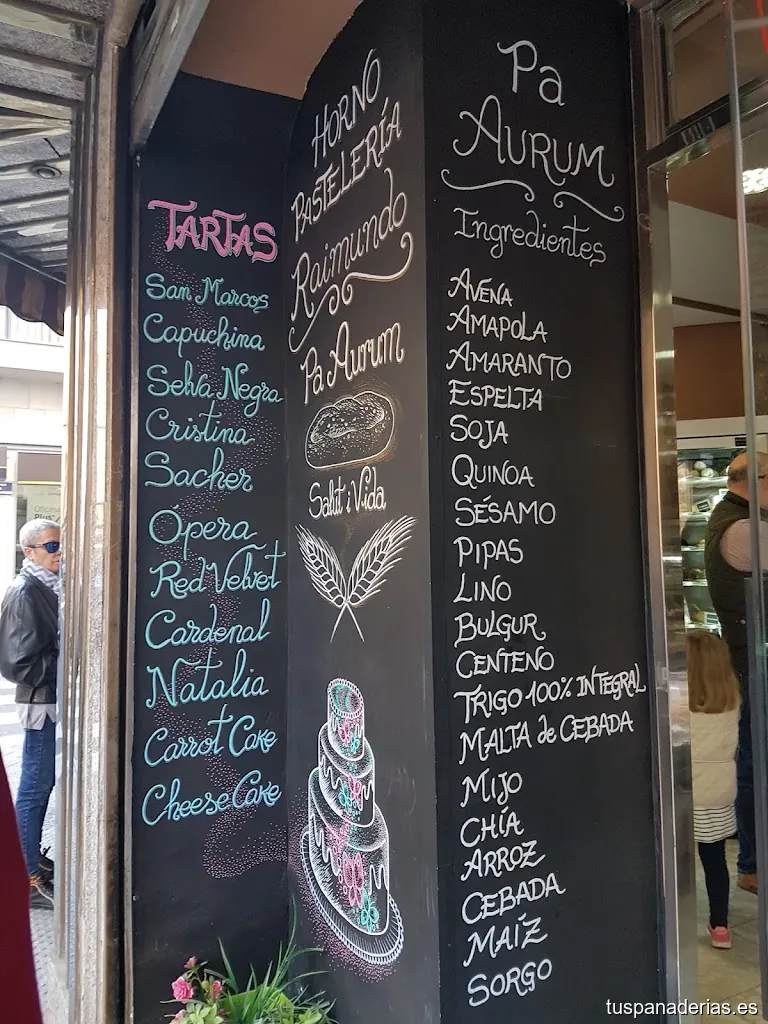 TARTAS
San Marcos
Capuchina
Selva Negra
Cristina
Sacher
Ópera
Red Velvet
Cardenal
Natalia
Carrot Cake
Cheese Cake
HORNO
PASTELERÍA
Raimundo
Pa Aurum
Salut i Vida
Pa
AURUM
Ingredientes
AVENA
AMAPOLA
AMARANTO
ESPELTA
SOJA
QUINOA
SÉSAMO
PIPAS
LINO
BULGUR
CENTENO
TRIGO 100% INTEGRAL
MALTA de CEBADA
MIJO
CHÍA
ARROZ
CEBADA
MAÍZ
SORGO
Oficina
Plus+
tuspanaderias.es